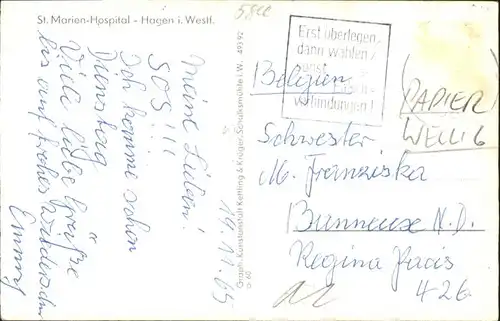 St. Marien-Hospital - Hagen i. Westf.
Meine Lieben!
SOS!!!
Ich komme schon
Dienstag
Viele liebe Grüße
bis auf frohes Wiedersehn
Emmy
14.11.65
Graph. Kunstanstalt Kettling & Krüger, Schalksmühle i. W. 49392
Erst überlegen,
dann wählen
Belgien
Schwester
M. Franziska
Banneux N.D.
Regina Pacis
426
(PAPIER
WELLIG